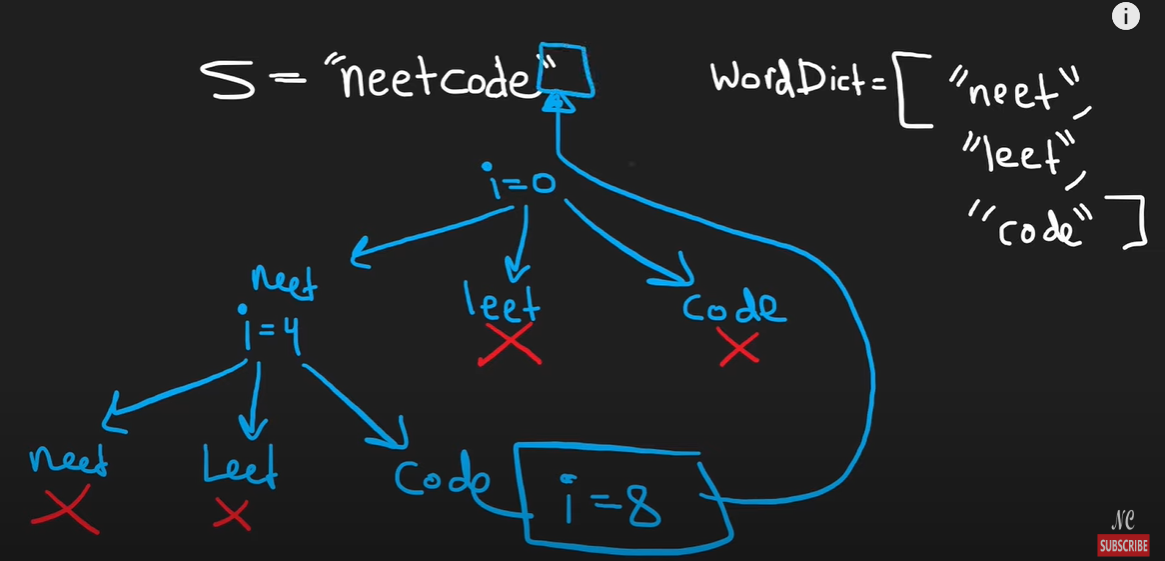 i
S = "neetcode"
WordDict = [ "neet",
"leet",
"code" ]
i=0
neet
leet
code
i=4
neet
Leet
Code
i=8
NC
SUBSCRIBE